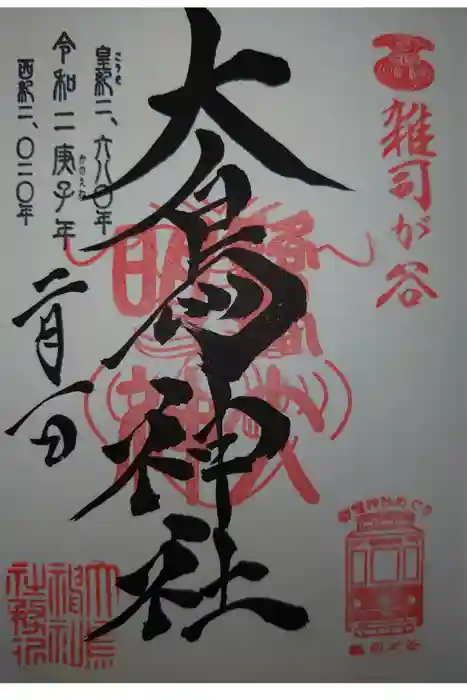 雑司が谷
大鳥神社
皇紀二、六八〇年
こうき
令和二庚子年
かのえね
西紀二、〇二〇年
二月一日
大鳥
神社
社務所